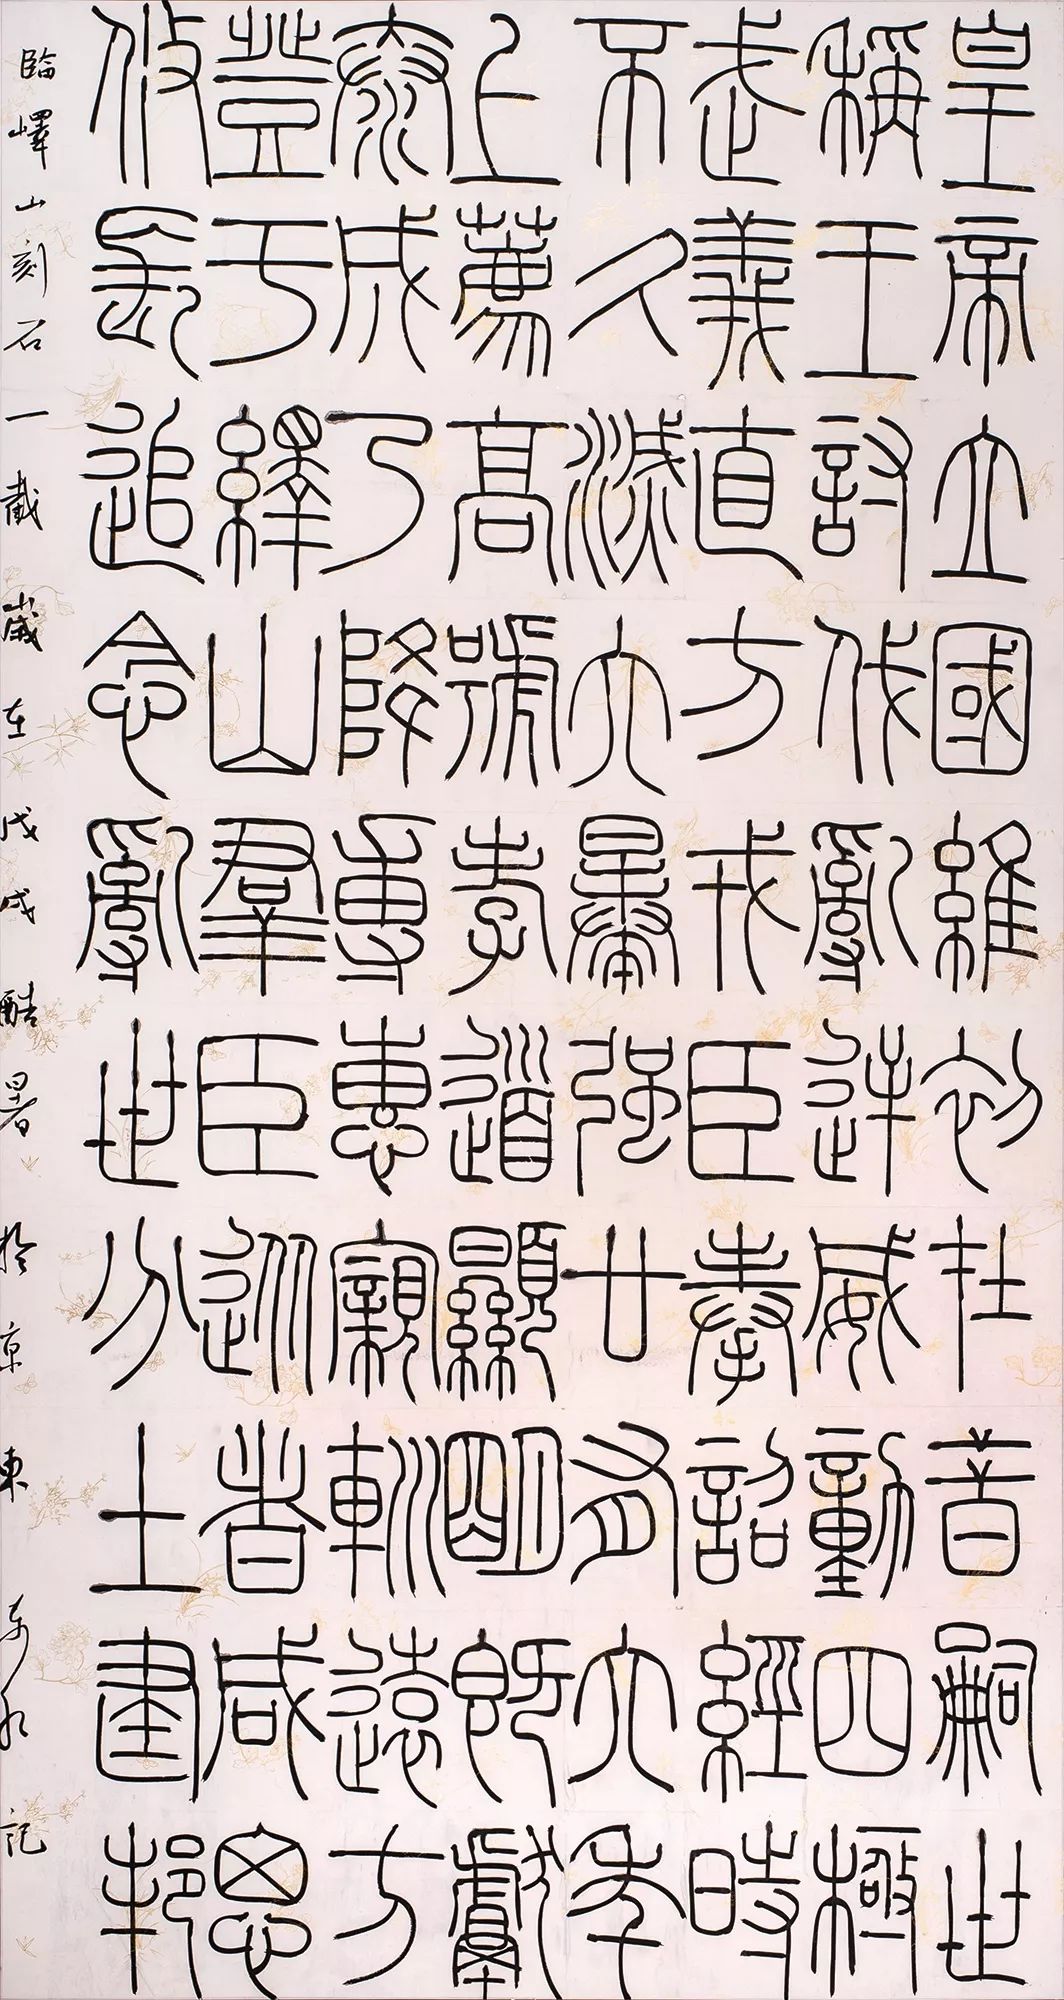 皇帝立國維初在昔嗣世
稱王討伐亂逆威動四極
武義直方戎臣奉詔經時
不久滅六暴強廿有六年
上薦高號孝道顯明既獻
泰成乃降尃惠寴巡遠方
登于繹山羣臣從者咸思
攸長追念亂世分土建邦
臨嶧山刻石一截歲在戊戌酷暑於京東記